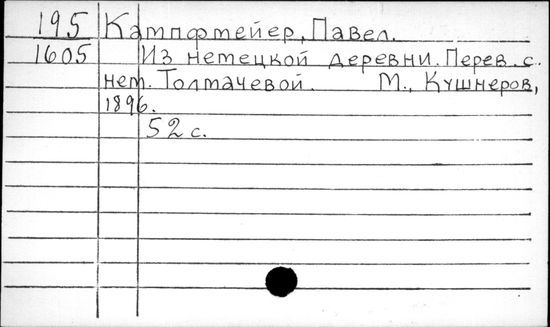 195 Кампфмейер, Павел.
1605 Из немецкой деревни. Перев. с
нем. Толмачевой. М., Кушнеров,
1896.
52 с.